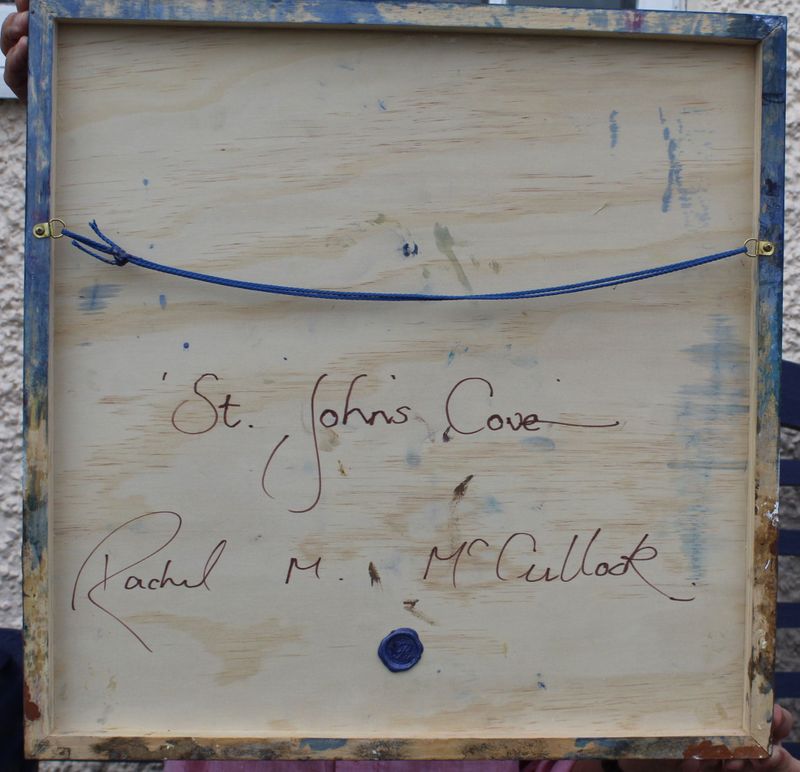 'St. John's Cove
Rachel M. McCullock.